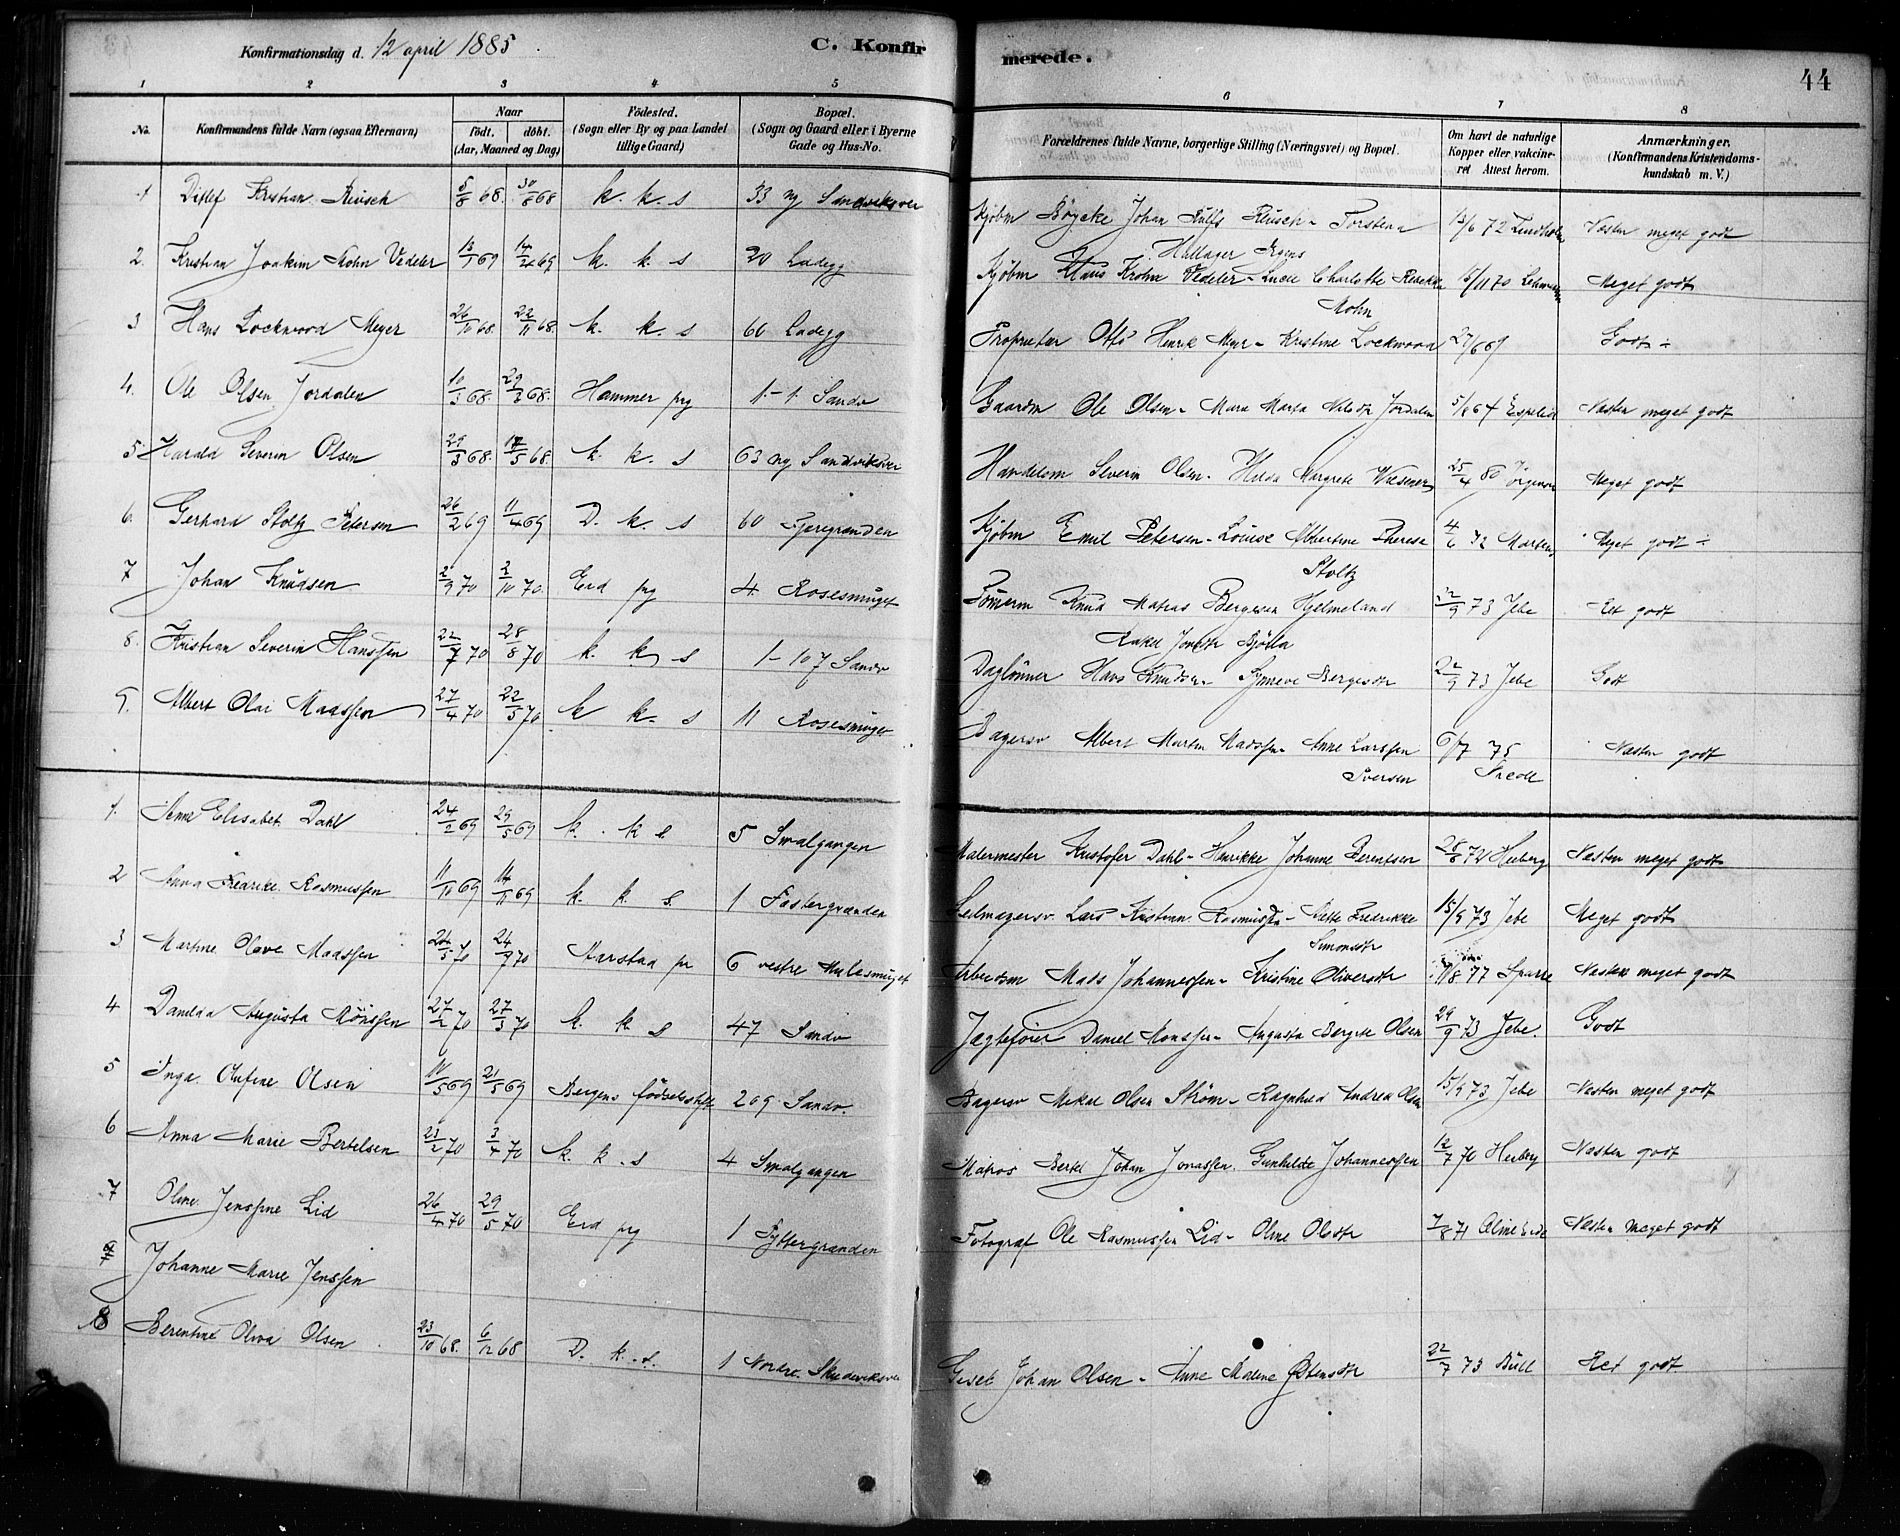 Konfirmationsdag d. 12 april 1885
C. Konfirmerede.
44
1 2 3 4 5 6 7 8
No. Konfirmandens fulde Navn (ogsaa Efternavn) Naar født. døbt. (Aar, Maaned og Dag) Fødested. (Sogn eller By og paa Landet tillige Gaard) Bopæl. (Sogn og Gaard eller i Byerne Gade og Hus-No. Forældrenes fulde Navne, borgerlige Stilling (Næringsvei) og Bopæl. Om havt de naturlige Kopper eller vakcineret Attest herom. Anmærkninger. (Konfirmandens Kristendomskundskab m. V.)
1 Ditlef Kristian Reusch 5/8 68. 30/8 68 k. k. s 33 ny Sandviksvei Kjøbm Johan Reusch - Hallager 13/6 72 Lindholm Næsten meget godt
2. Kristian Joakim Mohn Vedeler 13/1 69 k. k. s 20 Ladegg Kjøbm Hans Krohn Vedeler - Lucie Charlotte Rebekka Mohn 15/11 70 Meget godt
3 Hans Lockwood Meyer 26/10 68. 22/11 68. k. k. s 60 Ladegg Proprietær Otto Henrik Meyer - Kristine Lockwood 27/6 69 Godt
4. Ole Olsen Jordalen 10/3 68. 29/3 68. Hammer prg 1 - 1 Sandv Gaardm Ole Olsen - Mara Marta Nilsdtr Jordalen Espelid Næsten meget godt
5 Harald Severin Olsen 29/3 68. 17/5 68. k. k. s 63 ny Sandviksvei Handelsm Severin Olsen - Hilda Margrete Wiesener 25/4 80 Jörgensen Meget godt
6. Gerhard Stoltz Petersen 26/2 69 11/4 69 D. k. s 60 Kjøbm Emil Petersen - Louise Albertine Therese Stoltz 4/6 72 Martens Meget godt
7 Johan Knudsen 2/9 70 2/10 70. Eid prg 4 Rosesmuget Tømerm Knud Matias Bergesen Hjelmeland Rakel Jonsdtr 22/9 73 Jebe Ret godt
8. Kristian Severin Hanssen 22/7 70 28/8 70 k. k. s 1 - 107 Sandv Daglønner Hans Knudsen - Synneve Bergesdtr 22/9 73 Jebe Godt
9. Albert Olai Madssen 27/4 70 22/5 70 k k. s 11 Rosesmuget Bagersv Albert Martin Madssen - Anne Larssen Iversen 6/7 75 Næsten godt
1. Anne Elisabet Dahl 24/2 69 29/5 69 k. k s 5 Smalgangen Malermester Kristofer Dahl - Henrikke Johanne Berentsen 28/8 72 Heiberg Næsten meget godt
2 Anna Fredrike Rasmussen 11/10 69 14/11 69 k. k. s. 1 Fostergrænden Seilmagersv. Lars Kristian Rasmussen - Mette Fredrikke Simonsdtr 15/9 73 Jebe Meget godt
3 Martine Olave Madssen 24/5 70 24/9 70 Aarstad pr 6 vestre Mulesmuget Arbeidsm Mads Johannessen - Kristine Oliversdtr 11/8 77 Sparre Næsten meget godt
4 Danelda Augusta Mönssen 27/2 70 27/3 70 k. k s 47 Sandv Jægtefører Daniel Monssen - Augusta Bergite Olsen 29/9 73 Jebe. Godt
5 Inga Olufine Olsen 11/5 69 21/5 69 Bergens fødselsstift 209 Sandv. Bagersv Mikal Olsen Strøm - Ragnhild Andrea Olsen 15/9 73 Jebe Næsten meget godt
6 Anna Marie Bertelsen 23/2 70 3/4 70 k. k. s 4 Smalgangen Matros Bertel Johan Jonassen. Gunhilde Johannessen 12/7 70 Heiberg Næsten godt
7 Oline Jenssine Lid 26/4 70 29/5 70 Eid prg 1 Fyttergrænden Fotograf Ole Rasmussen Lid - Oline Olsdtr 7/8 71 Næsten meget godt
Johanne Marie Jenssen
8 Berentine Oliva Olsen 23/10 68. 6/12 68 D. k. s. 1 Nordre Skudeviksvei Johan Olsen - Anne Malene Østensdtr 22/7 73 Bull Ret godt